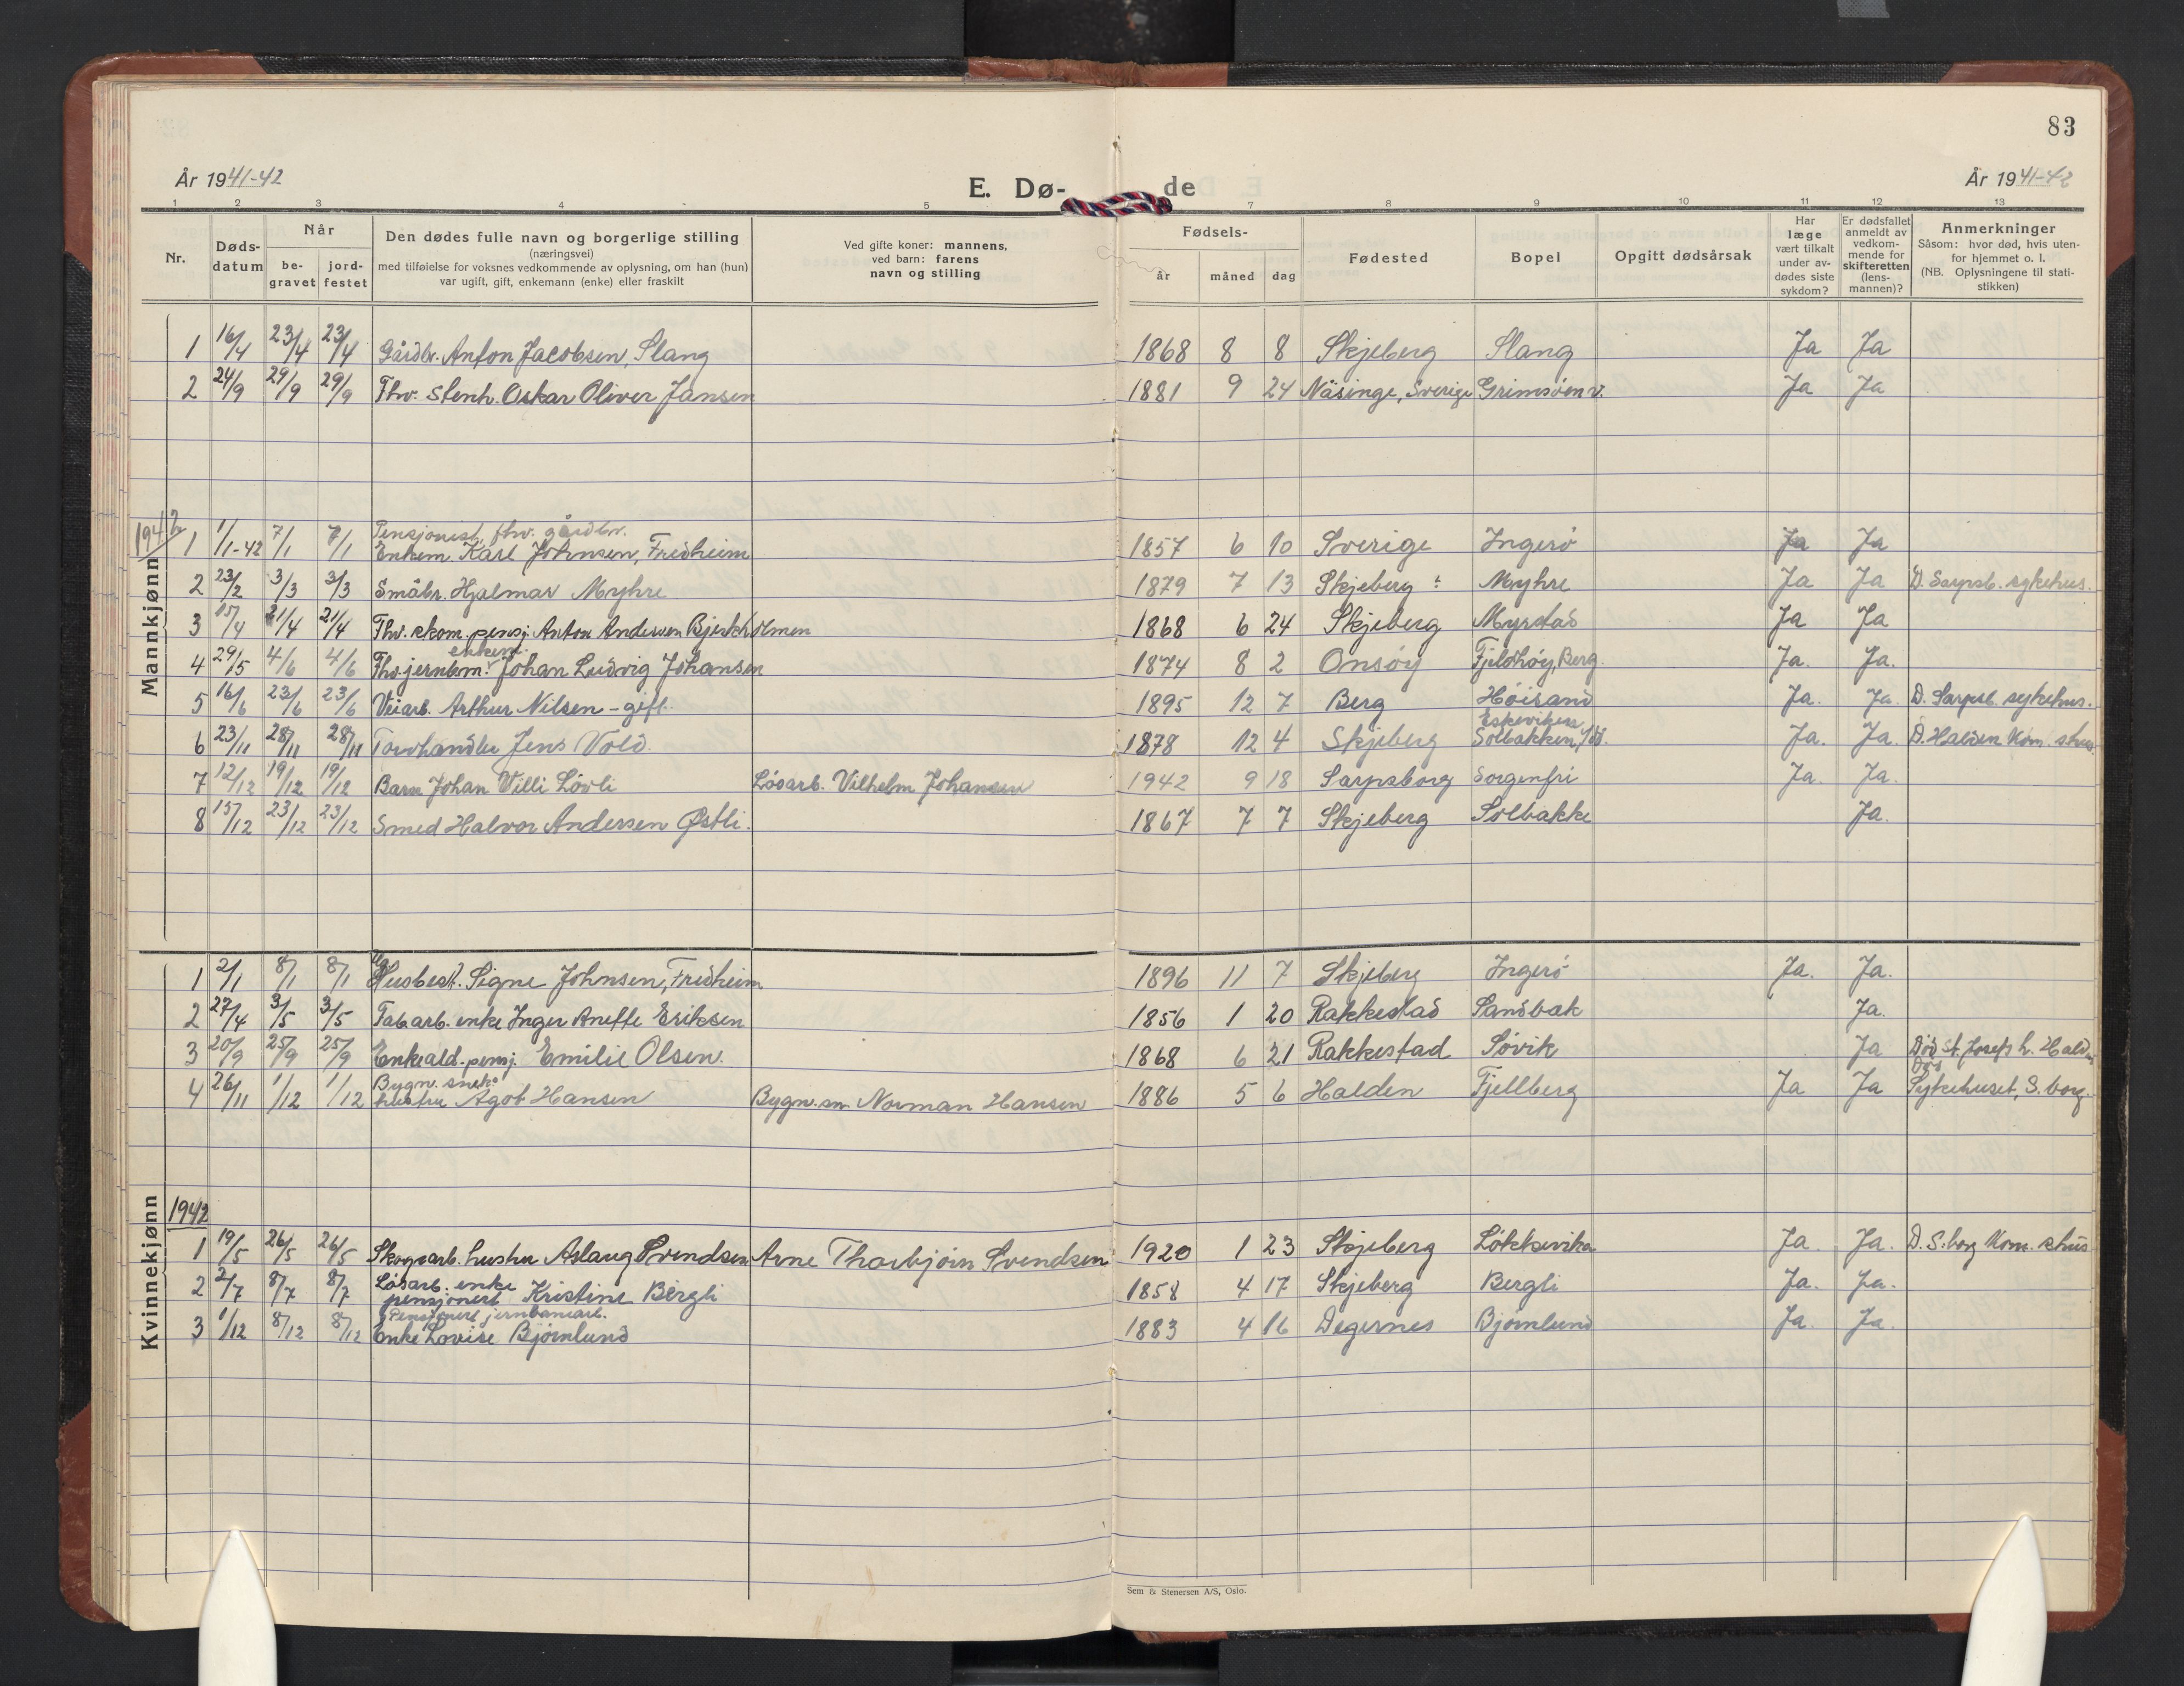 83
År 1941-42 E. Dø- de År 1941-42
1 2 3 4 5 7 8 9 10 11 12 13
Nr. Døds-datum Når be-gravet jord-festet Den dødes fulle navn og borgerlige stilling (næringsvei) med tilføielse for voksnes vedkommende av oplysning, om han (hun) var ugift, gift, enkemann (enke) eller fraskilt Ved gifte koner: mannens, ved barn: farens navn og stilling Fødsels- år måned dag Fødested Bopel Opgitt dødsårsak Har læge vært tilkalt under av-dødes siste sykdom? Er dødsfallet anmeldt av vedkom-mende for skifteretten (lens-mannen)? Anmerkninger Såsom: hvor død, hvis uten-for hjemmet o. l. (NB. Oplysningene til stati-stikken)
1 16/4 23/4 23/4 Gårdbr. Anton Jacobsen, Slang 1868 8 8 Skjeberg Slang Ja Ja
2 24/9 29/9 29/9 Fhv. Stenh. Oskar Oliver Jansen 1881 9 24 Näsinge, Sverige Grimsøen v. Ja Ja
Mannkjønn
1942
Pensjonist, fhv. gårdbr.
1 1/1-42 7/1 7/1 Enkem. Karl Johnsen, Fredheim 1857 6 10 Sverige Ingerö Ja Ja
2 23/2 3/3 3/3 Småbr. Hjalmar Myhre 1879 7 13 Skjeberg Myhre Ja Ja D. Sarpsb. sykehus.
3 15/4 21/4 21/4 Fhv. skom. pensj. Anton Andersen Bjerkholmen 1868 6 24 Skjeberg Myrstad Ja Ja
enkem.
4 29/5 4/6 4/6 Fhv. jernbm. Johan Ludvig Johansen 1874 8 2 Onsöy Fjeldhöy, Berg. Ja. Ja.
5 16/6 23/6 23/6 Veiarb. Arthur Nilsen - gift. 1895 12 7 Berg Höisand Ja. Ja. D. Sarpsb. sykehus.
Eskeviken
6 23/11 28/11 28/11 Jens Vold. 1878 12 4 Skjeberg Solbakken, Ja. Ja. D. Halden kom. shus.
7 12/12 19/12 19/12 Barn Johan Willi Lövli Lösarb. Vilhelm Johansen 1942 9 18 Sarpsborg Sorgenfri Ja. Ja.
8 15/12 23/12 23/12 Smed Halvor Andersen Østli. 1867 7 7 Skjeberg Solbakke Ja.
Kvinnekjønn
1 2/1 8/1 8/1 Husbest. Signe Johnsen, Fredheim 1896 11 7 Skjeberg Ingerö Ja. Ja.
2 27/4 3/5 3/5 Fab. arb. enke Inger Anette Eriksen 1856 1 20 Rakkestad Sandbak Ja.
3 20/9 25/9 25/9 Enke ald. pensj. Emilie Olsen. 1868 6 21 Rakkestad Sövik Ja Död St. Josefs h. Halden
Bygn. snek. Död
4 26/11 1/12 1/12 hustru Agot Hansen Bygn. sn. Norman Hansen 1886 5 6 Halden Fjellberg Ja Ja Sykehuset, S. borg.
1942
1 19/5 26/5 26/5 Skogsarb. hustru Aslaug Svendsen Arne Thorbjörn Svendsen 1920 1 23 Skjeberg Lökkevika Ja Ja. D. S.borg Kom. shus
Lösarb. enke
2 2/7 8/7 8/7 pensjonert Kristine Bergli 1858 4 17 Skjeberg Bergli Ja. Ja.
Pensjonert jernbanearb.
3 1/12 8/12 8/12 Enke Lovise Björnlund 1883 4 16 Degernes Björnlund Ja Ja.
Sem & Stenersen A/S, Oslo.